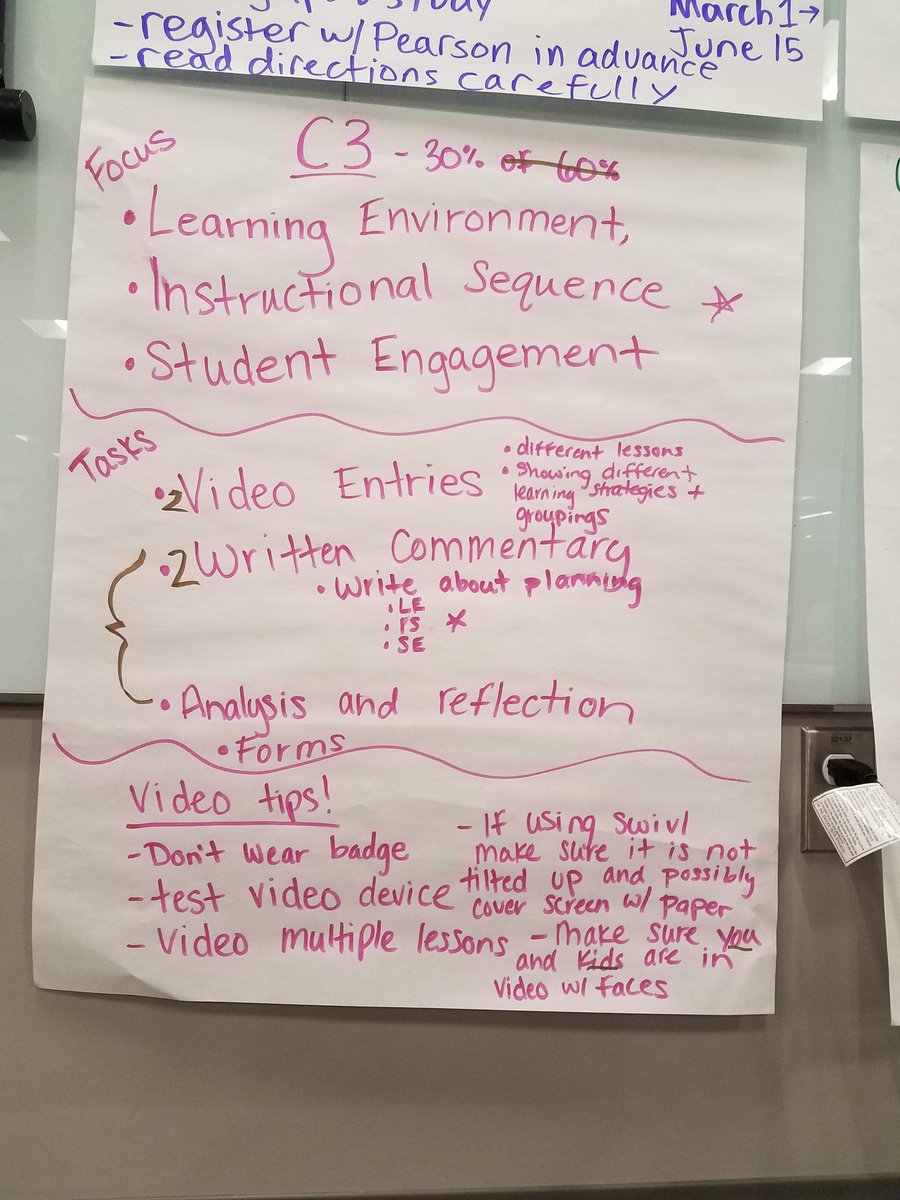 study
-register w/Pearson in advance
-read directions carefully
March 1→
June 15
Focus
C3 - 30% of 60%
• Learning Environment,
• Instructional Sequence *
• Student Engagement
Tasks
• 2 Video Entries
• different lessons
• Showing different
learning strategies +
groupings
• 2 Written Commentary
• Write about planning
• LE
• IS *
• SE
• Analysis and reflection
• Forms
Video tips!
- Don't wear badge
- test video device
- Video multiple lessons
- If using Swivl
make sure it is not
tilted up and possibly
cover screen w/ paper
- make sure you
and kids are in
video w/ faces